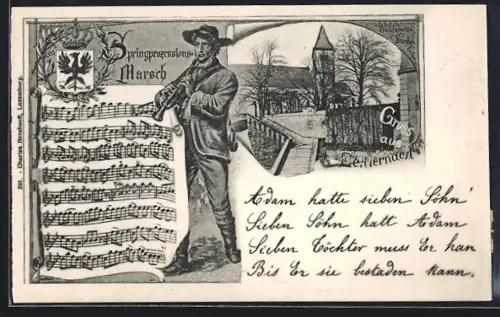 Springprozessions-
Marsch
Wallfahrts-
Kirche
Gruss
aus
Echternach
Adam hatte sieben Söhn'
Sieben Söhn hatt Adam
Sieben Töchter muss Er han
Bis Er sie bestaden kann.
251. - Charles Bernhoeft, Luxemburg.